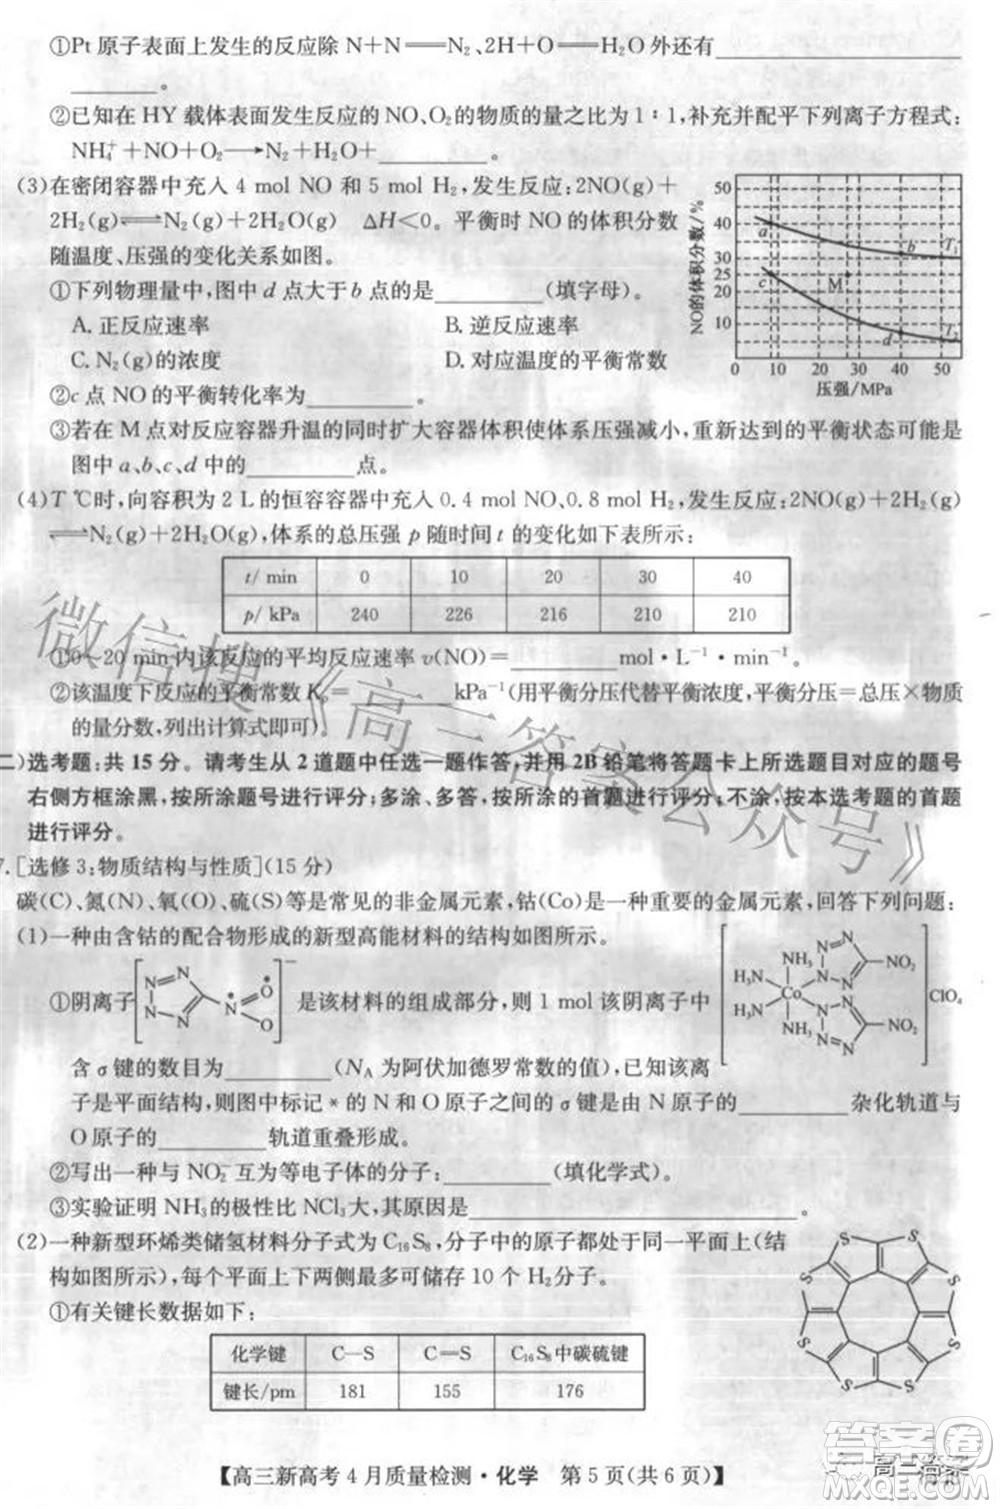 ①Pt 原子表面上发生的反应除 N+N══N₂、2H+O══H₂O 外还有____________
________。
②已知在 HY 载体表面发生反应的 NO、O₂的物质的量之比为 1∶1,补充并配平下列离子方程式:
NH₄⁺+NO+O₂⟶N₂+H₂O+________。
(3)在密闭容器中充入 4 mol NO 和 5 mol H₂,发生反应:2NO(g)+
2H₂(g)⇌N₂(g)+2H₂O(g) ΔH<0。平衡时 NO 的体积分数
随温度、压强的变化关系如图。
①下列物理量中,图中 d 点大于 b 点的是________(填字母)。
A. 正反应速率 B. 逆反应速率
C. N₂(g)的浓度 D. 对应温度的平衡常数
②c 点 NO 的平衡转化率为________。
③若在 M 点对反应容器升温的同时扩大容器体积使体系压强减小,重新达到的平衡状态可能是
图中 a、b、c、d 中的________点。
NO的体积分数/%
50
40
30
25
20
10
0 10 20 30 40 50
压强/MPa
a b T₁
c M d T₂
(4)T ℃时,向容积为 2 L 的恒容容器中充入 0.4 mol NO、0.8 mol H₂,发生反应:2NO(g)+2H₂(g)
⇌N₂(g)+2H₂O(g),体系的总压强 p 随时间 t 的变化如下表所示:
t/ min 0 10 20 30 40
p/ kPa 240 226 216 210 210
①0~20 min 内该反应的平均反应速率 v(NO)=________mol·L⁻¹·min⁻¹。
②该温度下反应的平衡常数 Kₚ=________kPa⁻¹(用平衡分压代替平衡浓度,平衡分压=总压×物质
的量分数,列出计算式即可)。
二)选考题:共 15 分。请考生从 2 道题中任选一题作答,并用 2B 铅笔将答题卡上所选题目对应的题号
右侧方框涂黑,按所涂题号进行评分;多涂、多答,按所涂的首题进行评分;不涂,按本选考题的首题
进行评分。
7.[选修 3:物质结构与性质](15 分)
碳(C)、氮(N)、氧(O)、硫(S)是常见的非金属元素,钴(Co)是一种重要的金属元素,回答下列问题:
(1)一种由含钴的配合物形成的新型高能材料的结构如图所示。
①阴离子[N N N N N* O* O]⁻是该材料的组成部分,则 1 mol 该阴离子中
含 σ 键的数目为________(Nᴀ 为阿伏加德罗常数的值),已知该离
子是平面结构,则图中标记*的 N 和 O 原子之间的 σ 键是由 N 原子的________杂化轨道与
O 原子的________轨道重叠形成。
NH₃ H₃N H₃N NH₃ NH₃ Co N N N N NO₂ N N N N NO₂ ClO₄
②写出一种与 NO₂⁻ 互为等电子体的分子:________(填化学式)。
③实验证明 NH₃的极性比 NCl₃大,其原因是________________。
(2)一种新型环烯类储氢材料分子式为 C₁₆S₈,分子中的原子都处于同一平面上(结
构如图乙所示),每个该杂环平面上下两侧最多可储存 10 个 H₂分子。
①有关键长数据如下:
化学键 C—S C═S C₁₆S₈中碳硫键
键长/pm 181 155 176
S S S S S S S S
【高三新高考 4 月质量检测·化学 第 5 页(共 6 页)】
微信搜《高三答案公众号》
答案圈